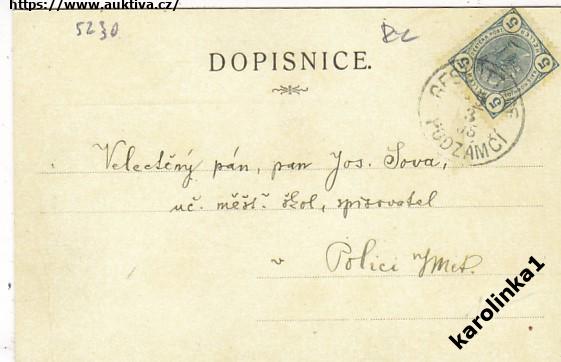 https://www.auktiva.cz/
5230
DOPISNICE.
5 5
5 5
PODZÁMČÍ
Velectěný pán, pan Jos. Sova,
uč. měšť. škol, spisovatel
v Polici n/Met.
karolinka1